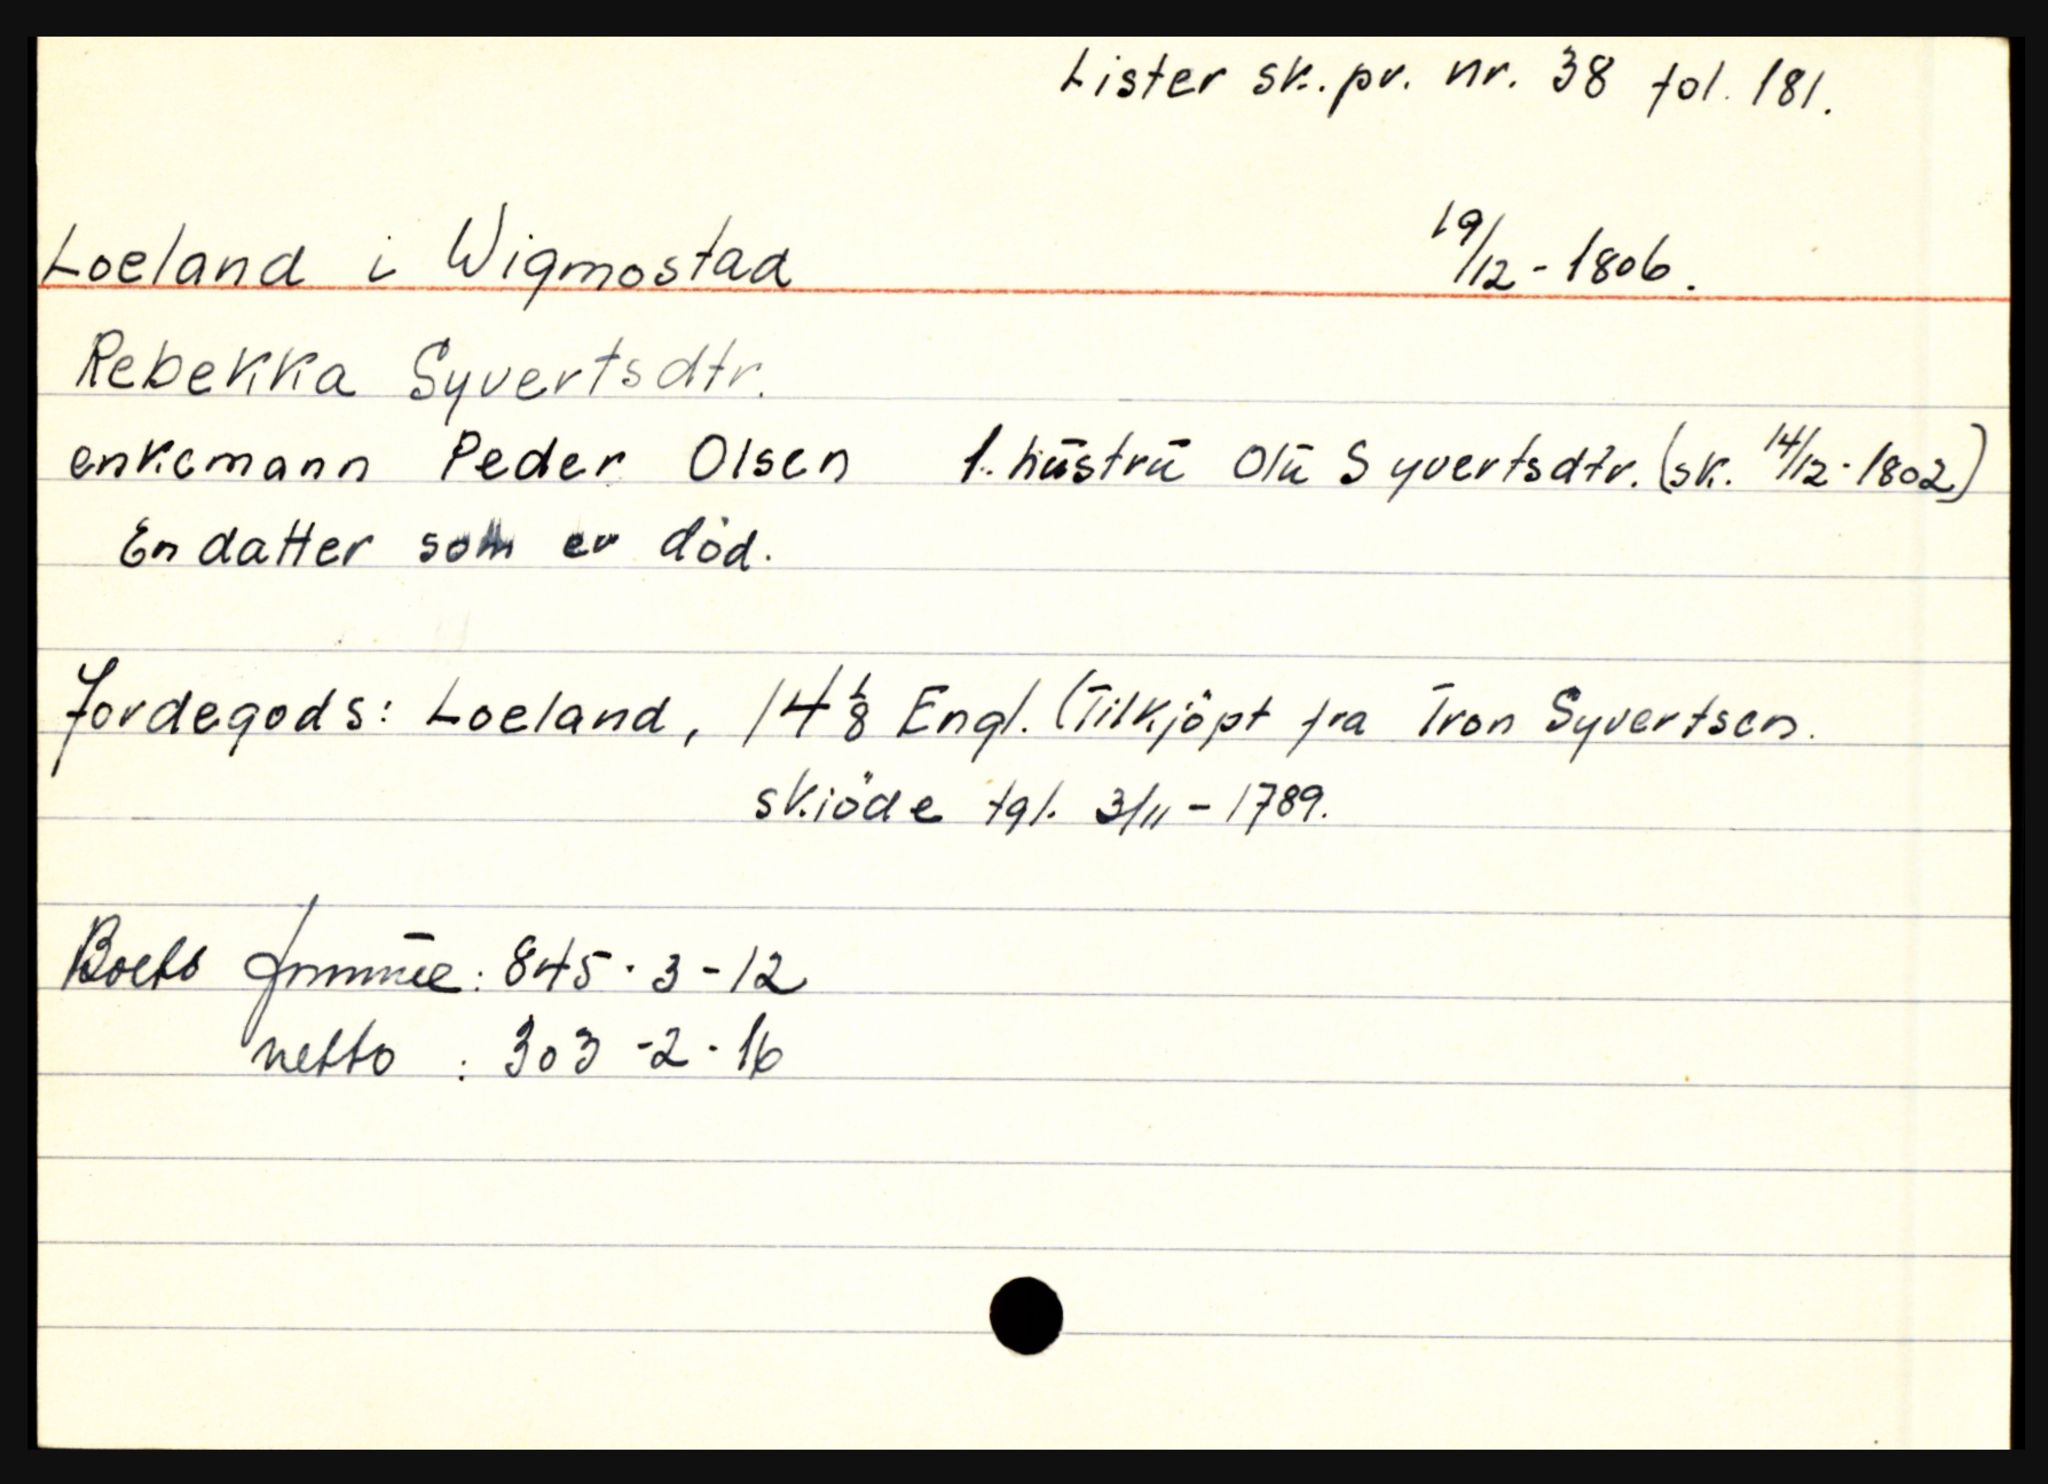 Lister sk. pr. nr. 38 fol. 181.
Loeland i Wigmostad 19/12 - 1806.
Rebekka Syvertsdtr.
enkemann Peder Olsen 1. hūstrū Olū Syvertsdtr. (sk. 14/12 - 1802)
En datter som er död.
Jordegods: Loeland, 14 1/8 Engl. (Tilkjöpt fra Tron Syvertsen.
skiöde tgl. 3/11 - 1789.
Boets : 845 - 3 - 12
netto : 303 - 2 - 16